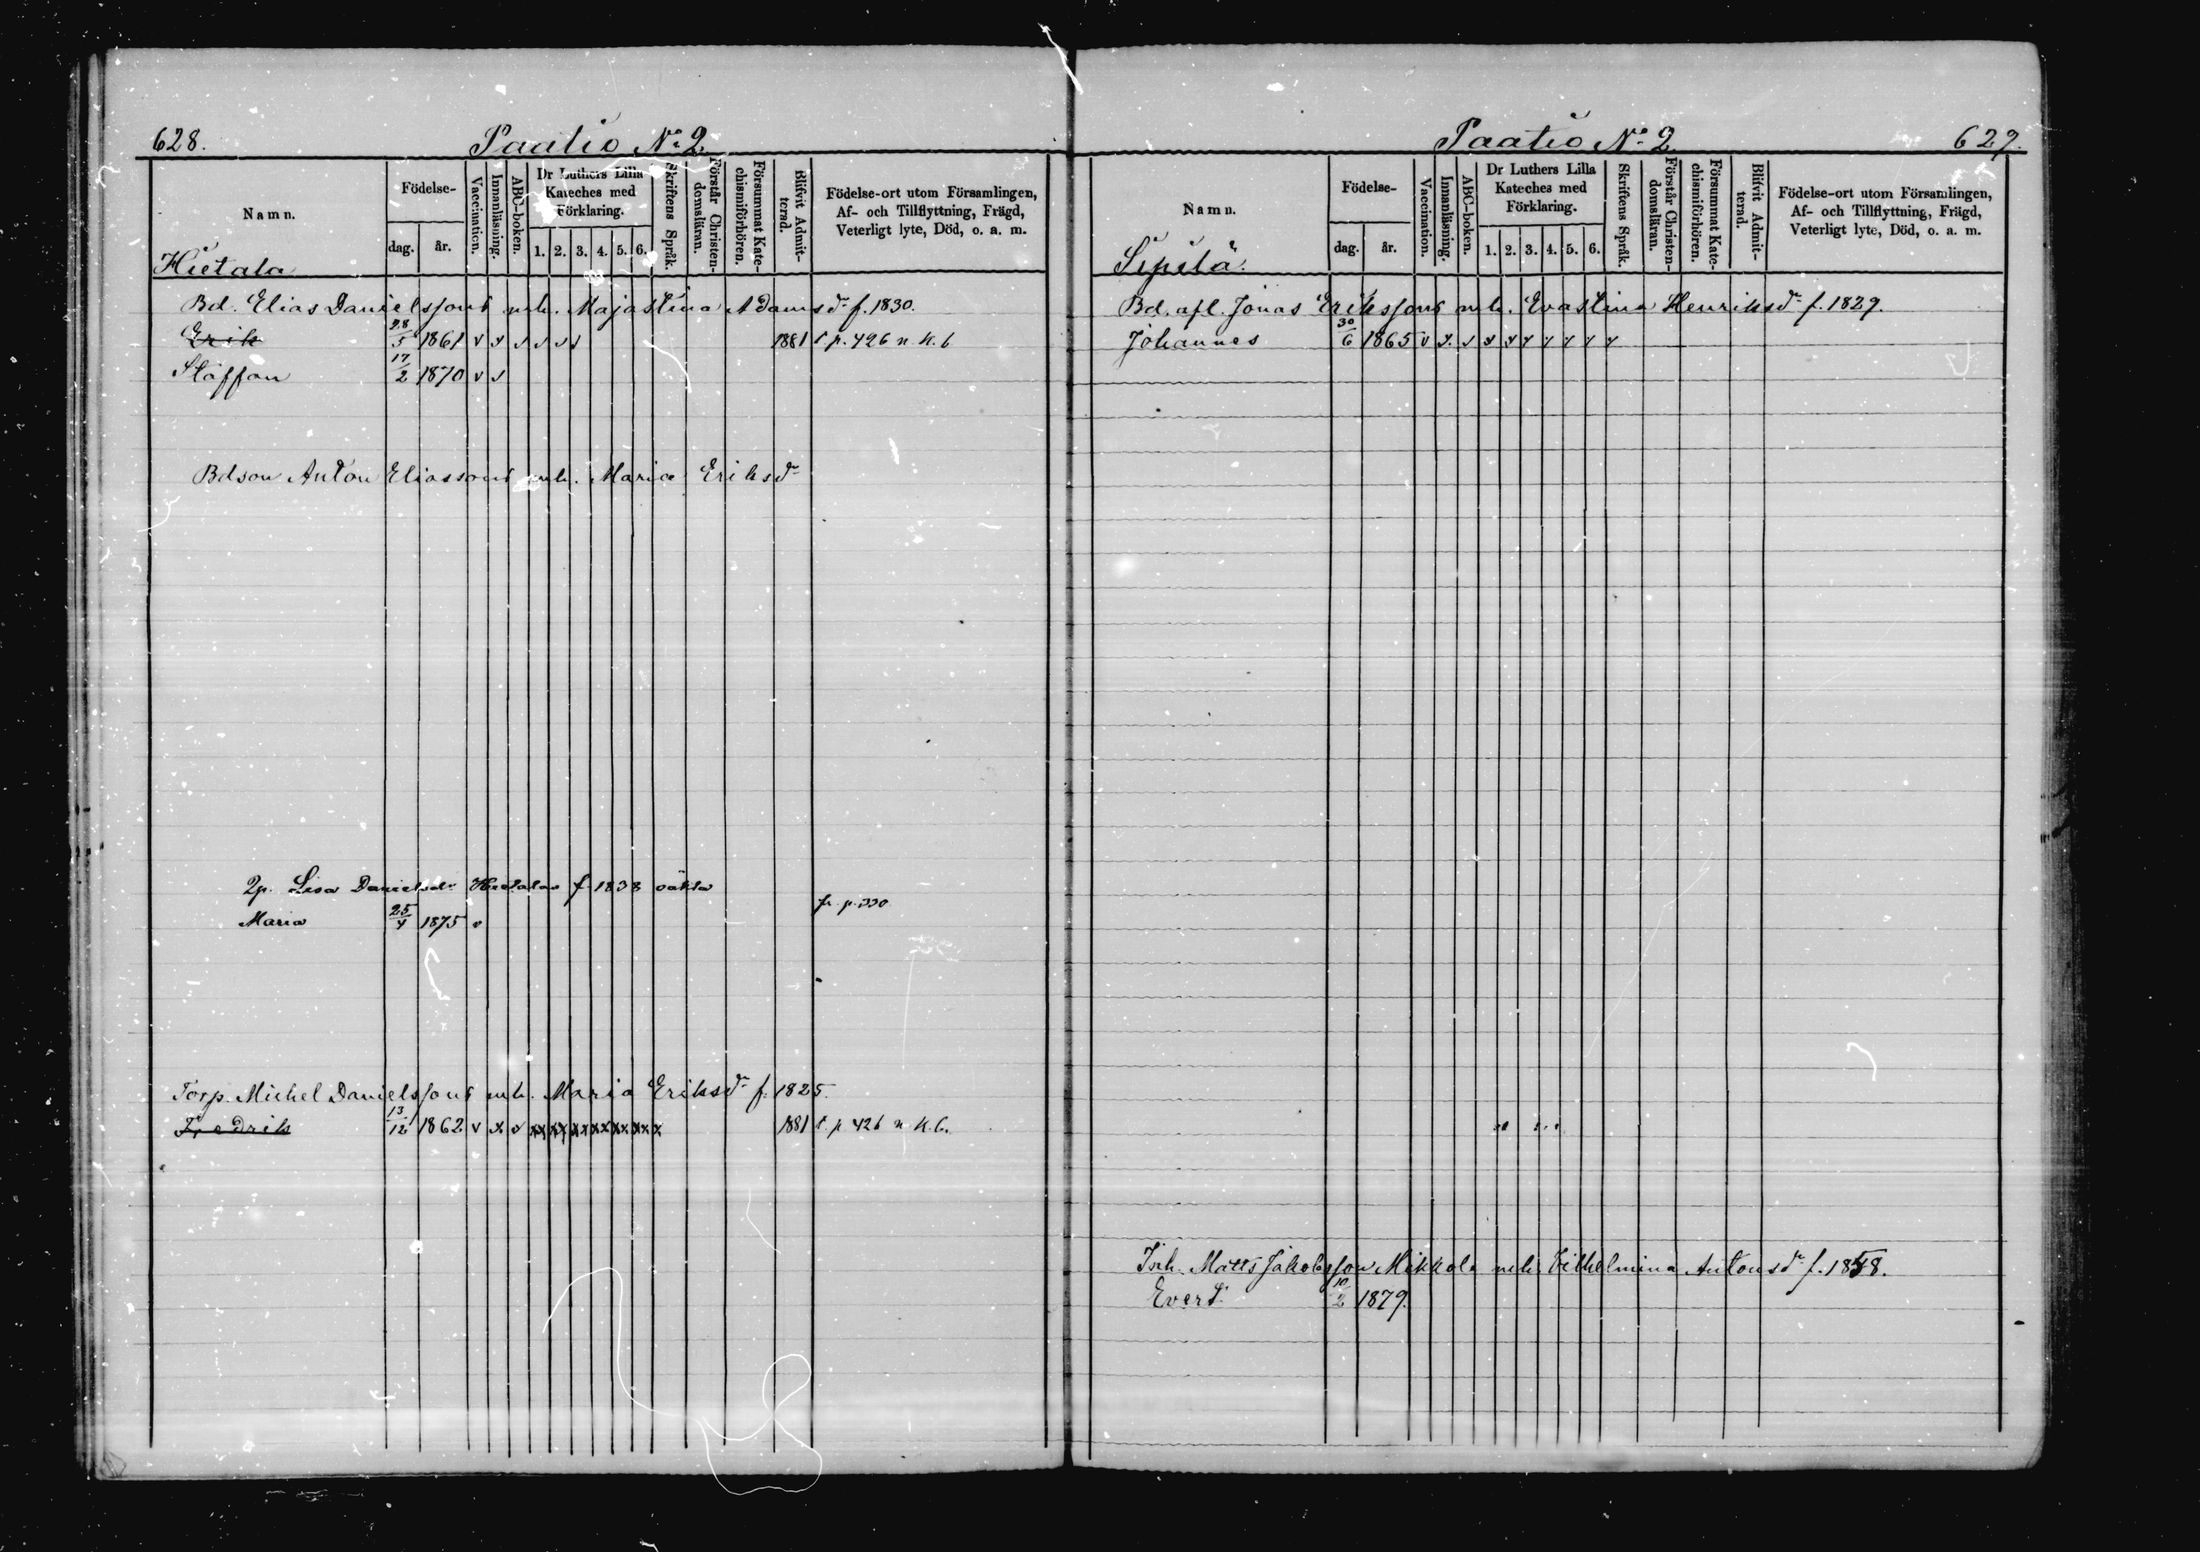 628.
Paatio No 2.
Namn.
Födelse-
dag. år.
Vaccination.
Innanläsning.
ABC-boken.
Dr Luthers Lilla
Kateches med
Förklaring.
1. 2. 3. 4. 5. 6.
Skriftens Språk.
Förstår Christen-
domsläran.
Försummat Kate-
chismiförhören.
Blifvit Admit-
terad.
Födelse-ort utom Församlingen,
Af- och Tillflyttning, Frägd,
Veterligt lyte, Död, o. a. m.
Hietala
Bd. Elias Danielssons mh. Majastina Adamsdr f. 1830.
Erik 28/5 1861 v v v v v v 1881 t p. 426 n. K. b
Staffan 17/2 1870 v v
Bdson Anton Eliassons mh. Maria Eriksdr
Lisa Danielsdr Hietalas f 1838 oäkta
fr. p. 330
Maria 25/4 1875 v
Torp. Michel Danielssons mh. Maria Eriksdr f. 1825.
Fredrik 13/12 1862 v x v xx xx xx xx xx xx x 1881 t. p 426 n. K. b.
Paatio No 2
629.
Namn.
Födelse-
dag. år.
Vaccination.
Innanläsning.
ABC-boken.
Dr Luthers Lilla
Kateches med
Förklaring.
1. 2. 3. 4. 5. 6.
Skriftens Språk.
Förstår Christen-
domsläran.
Försummat Kate-
chismiförhören.
Blifvit Admit-
terad.
Födelse-ort utom Församlingen,
Af- och Tillflyttning, Frägd,
Veterligt lyte, Död, o. a. m.
Sipilä.
Bd. afl. Jonas Erikssons mh. Evastina Henriksdr f. 1829.
Johannes 30/6 1865 v v v v v v v v v v
Matts Jakobsson Mikkola mh. Vilhelmina Antonsdr f. 1858.
Everd. 10/2 1879.